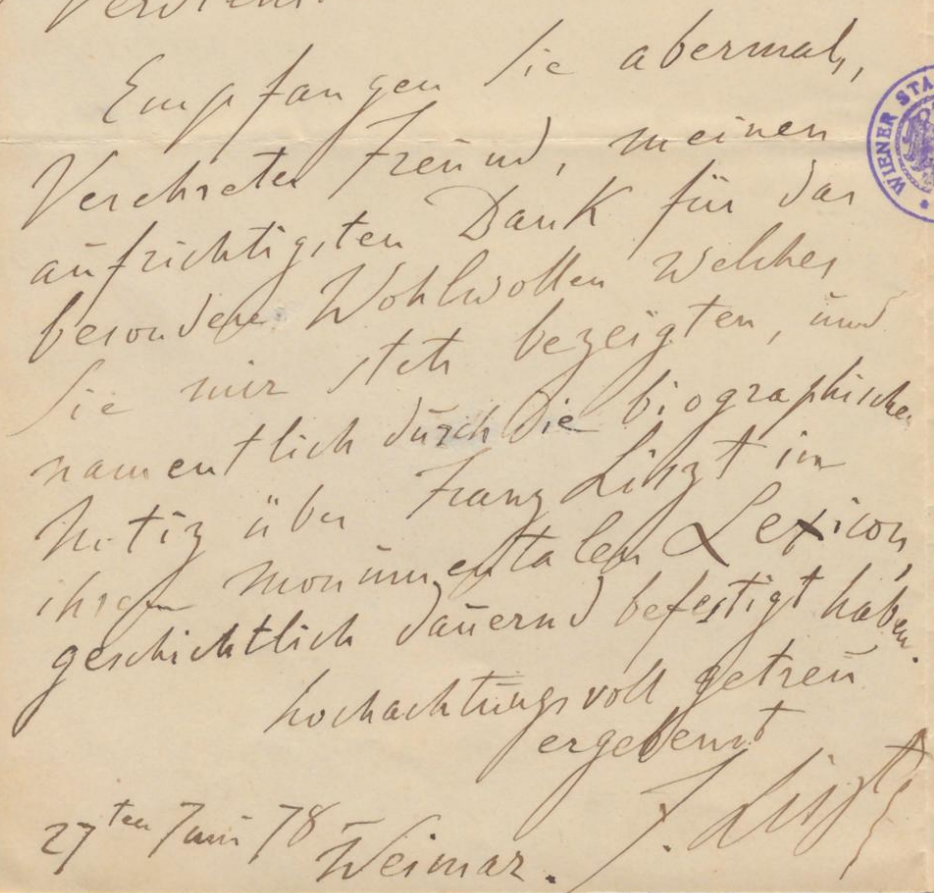 Empfangen Sie abermals,
Verehrter Freund, meinen
aufrichtigsten Dank für das
besondere Wohlwollen welches
Sie mir stets bezeigten, und
namentlich durch die biographische
Notiz über Franz Liszt im
ihrem monumentalen Lexicon,
geschichtlich dauernd befestigt haben.
hochachtungsvoll getreu
ergebenst
F. Liszt
27ten Juni 78 Weimar.
WIENER STA